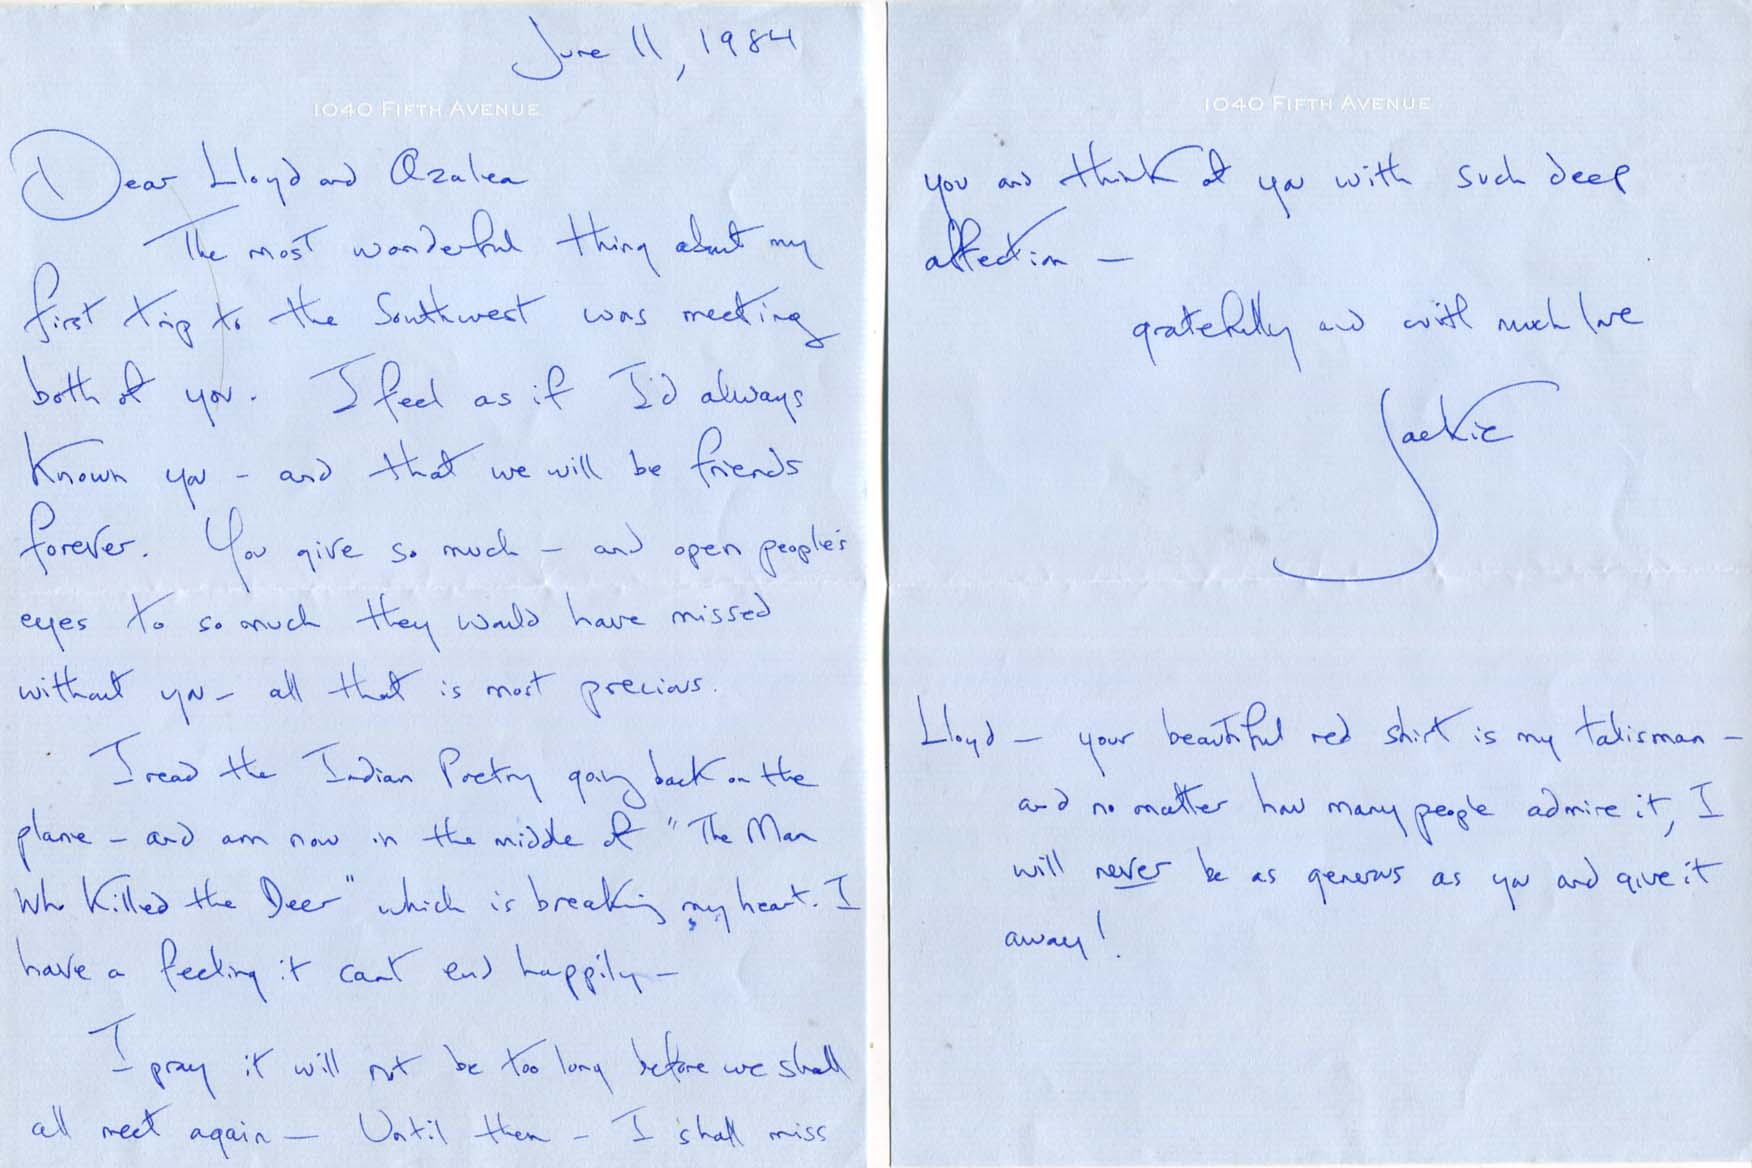 June 11, 1984
1040 FIFTH AVENUE
Dear Lloyd and Azalea
The most wonderful thing about my
first trip to the Southwest was meeting
both of you. I feel as if I'd always
known you – and that we will be friends
forever. You give so much – and open people's
eyes to so much they would have missed
without you – all that is most precious.
I read the Indian Poetry going back on the
plane – and am now in the middle of "The Man
Who Killed the Deer" which is breaking my heart. I
have a feeling it cant end happily –
I pray it will not be too long before we shall
all meet again – Until then – I shall miss
1040 FIFTH AVENUE
you and think of you with such deep
affection –
gratefully and with much love
Jackie
Lloyd – your beautiful red shirt is my talisman –
and no matter how many people admire it, I
will never be as generous as you and give it
away!